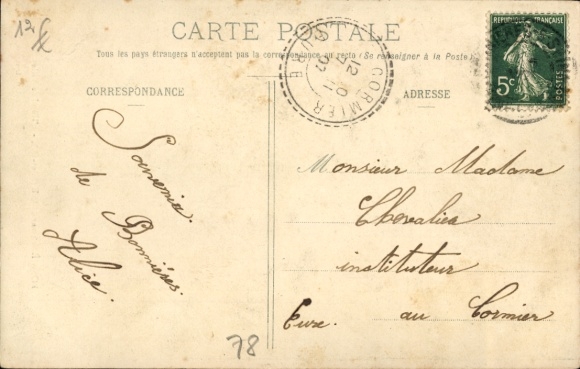 12€
CARTE POSTALE
Tous les pays étrangers n'acceptent pas la correspondance au recto (Se renseigner à la Poste)
CORRESPONDANCE
ADRESSE
REPUBLIQUE FRANÇAISE
5c
POSTES
CORMIER
EURE
Souvenir
de Bonnières.
Alice.
Monsieur Madame
Chevalier
instituteur
au Cormier
Eure.
78